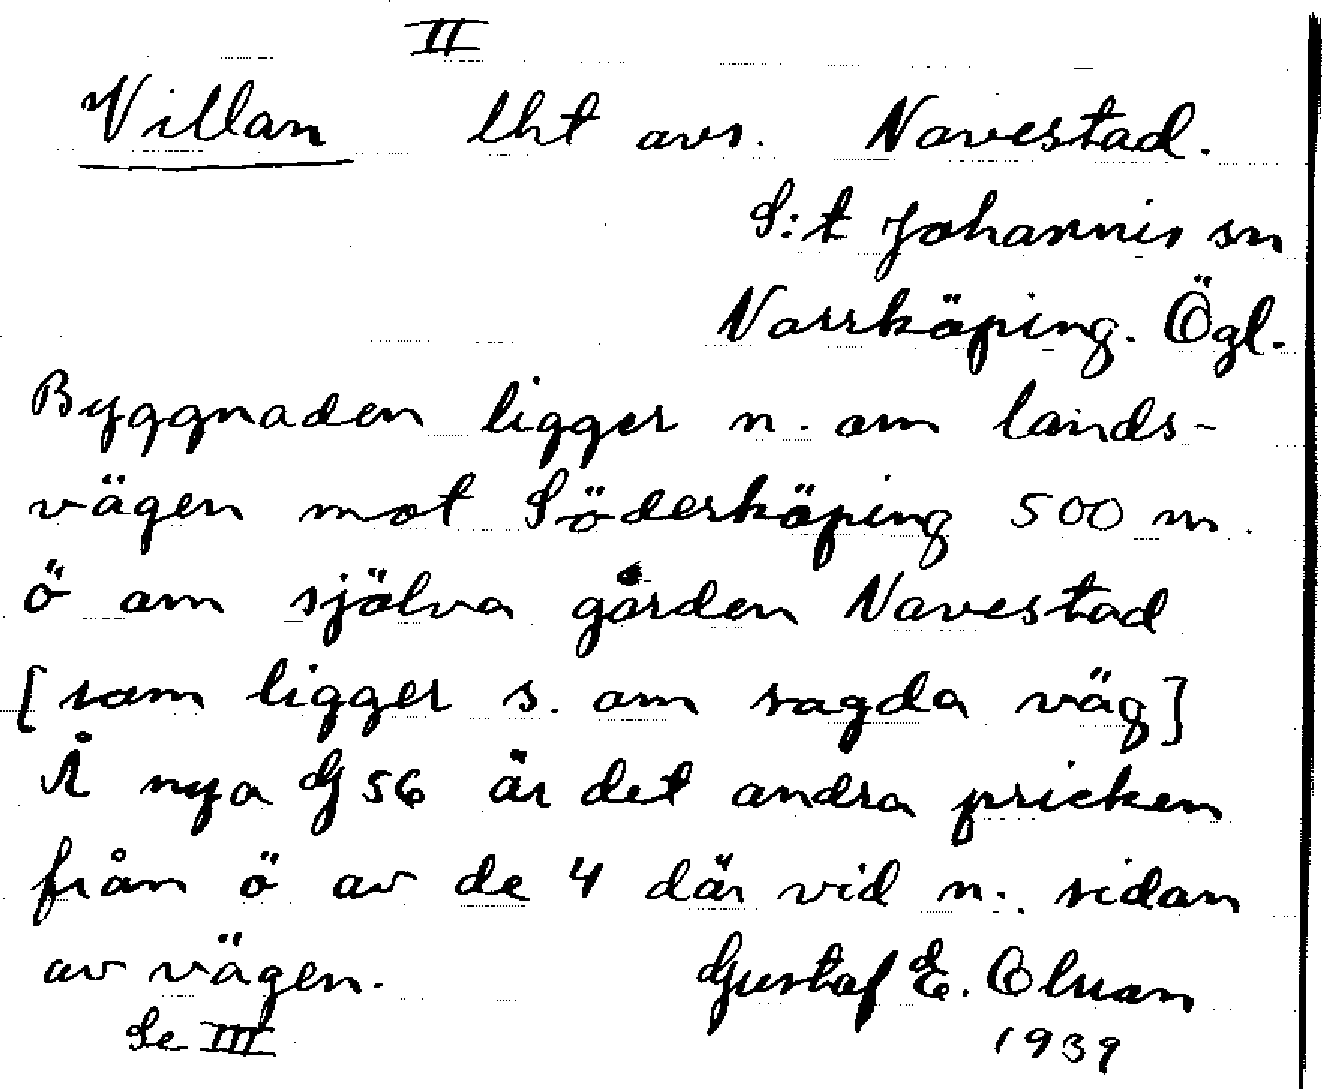 II
Villan lht avs. Navestad.
S:t Johannis sn
Norrköping. Ögl.
Byggnaden ligger n. om lands-
vägen mot Söderköping 500 m.
ö om själva gården Navestad
[som ligger s. om sagda väg]
Å nya G56 är det andra pricken
från ö av de 4 där vid n. sidan
av vägen. Gustaf E. Olsson
Se III 1939